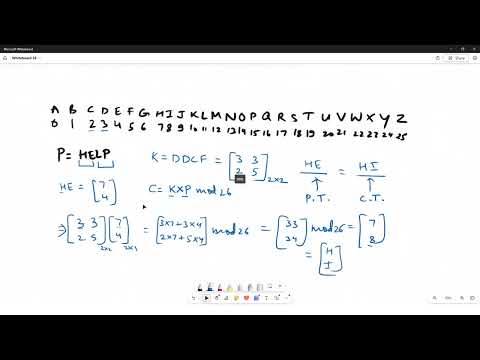 Microsoft Whiteboard
Whiteboard 19
A B C D E F G H I J K L M N O P Q R S T U V W X Y Z
0 1 2 3 4 5 6 7 8 9 10 11 12 13 14 15 16 17 18 19 20 21 22 23 24 25
P = HELP K = DDCF = [3 3 2 5] 2×2 HE = HI
P.T. C.T.
HE = [7 4] C = K×P mod 26
⇒ [3 3 2 5] 2×2 [7 4] 2×1 = [3×7+3×4 2×7+5×4] mod 26 = [33 34] mod 26 = [7 8]
= [H I]